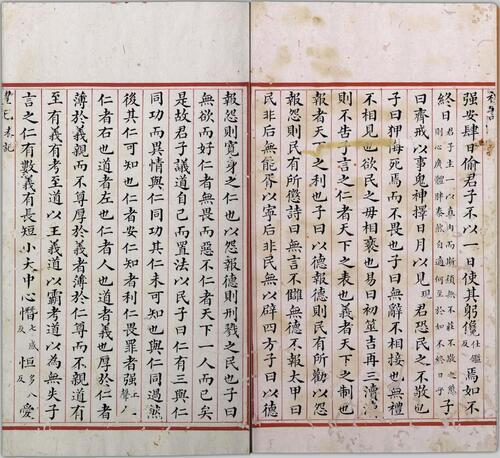 强安肆日偷君子不以一日使其躬儳仕鑑反焉如不
終日君子主一以直內而斯須不莊不敬之慝則心廣體胖泰然自適何至於如不終日乎子
曰齊戒以事鬼神擇日月以見現君恐民之不敬也
子曰狎侮死焉而不畏也子曰無辭不相接也無禮
不相見也欲民之毋相褻也易曰初筮吉再三瀆瀆
則不告子言之仁者天下之表也義者天下之制也
報者天下之利也子曰以德報德則民有所勸以怨
報怨則民有所懲詩曰無言不讎無德不報太甲曰
民非后無能胥以寧后非民無以辟四方子曰以德
報怨則寬身之仁也以怨報德則刑戮之民也子曰
無欲而好仁者無畏而惡不仁者天下一人而已矣
是故君子議道自己而置法以民子曰仁有三與仁
同功而異情與仁同功其仁未可知也與仁同過然
後其仁可知也仁者安仁知者利仁畏罪者强上聲
仁者右也道者左也仁者人也道者義也厚於仁者
薄於義親而不尊厚於義者薄於仁尊而不親道有
至有義有考至道以王義道以霸考道以為無失子
言之仁有數義有長短小大中心憯七感反怛多八反愛